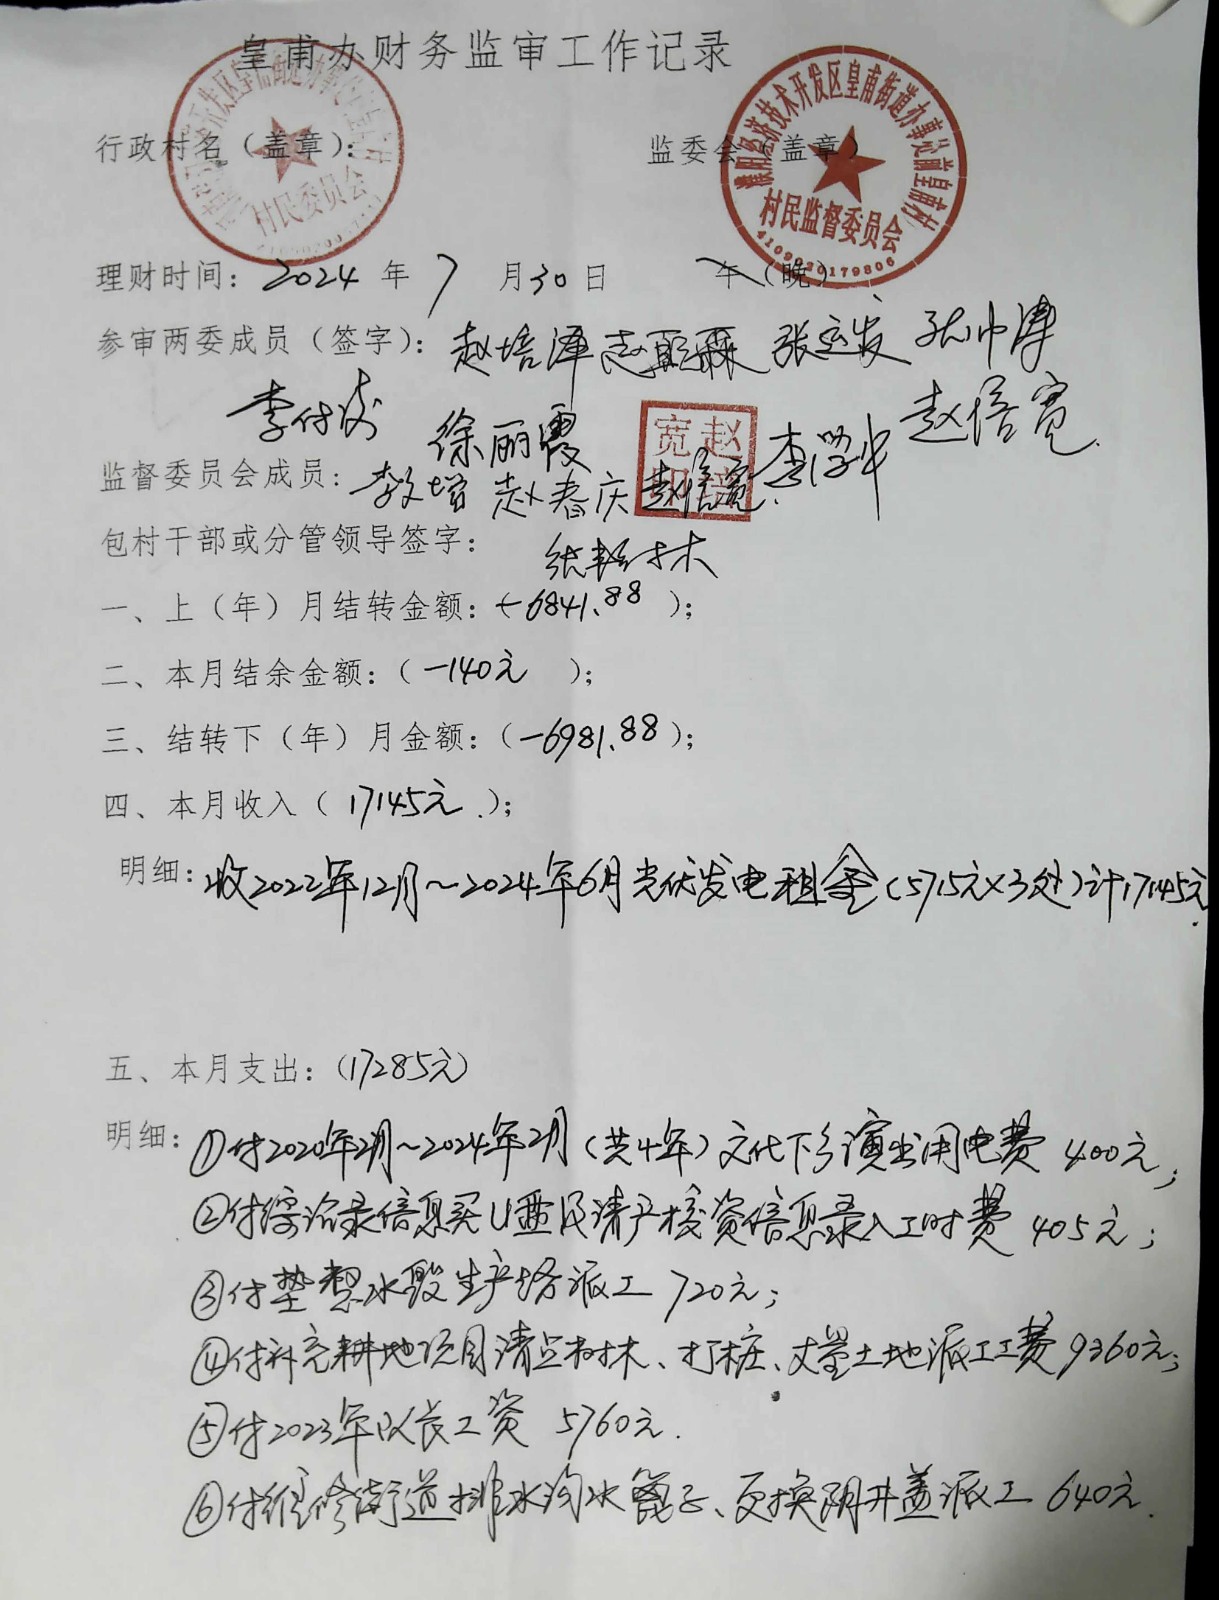 皇甫办财务监审工作记录
行政村名（盖章）：
监委会（盖章）
村民委员会
濮阳经济技术开发区皇甫街道办事处前皇甫村
村民监督委员会
4109020179806
理财时间：2024年7月30日 午（晚）
参审两委成员（签字）：赵培泽 张
李 徐丽霞 赵信宽
监督委员会成员：赵春庆 赵信宽 李学中
包村干部或分管领导签字：张 林
一、上（年）月结转金额：（-6841.88）；
二、本月结余金额：（-140元）；
三、结转下（年）月金额：（-6981.88）；
四、本月收入（17145元.）；
明细：收2022年12月～2024年6月光伏发电租金（5715元×3处）计17145元.
五、本月支出：（17285元）
明细：①付2020年2月～2024年2月（共4年）文化下乡演出用电费 400元；
②付综治录信息买U盘及清产核资信息录入工时费 405元；
③付垫整水毁生产路派工 720元；
④付补充耕地项目清点树木、打桩、丈量土地派工工费9360元；
⑤付2023年队长工资 5760元.
⑥付维修街道排水沟水篦子、更换阴井盖派工 640元.